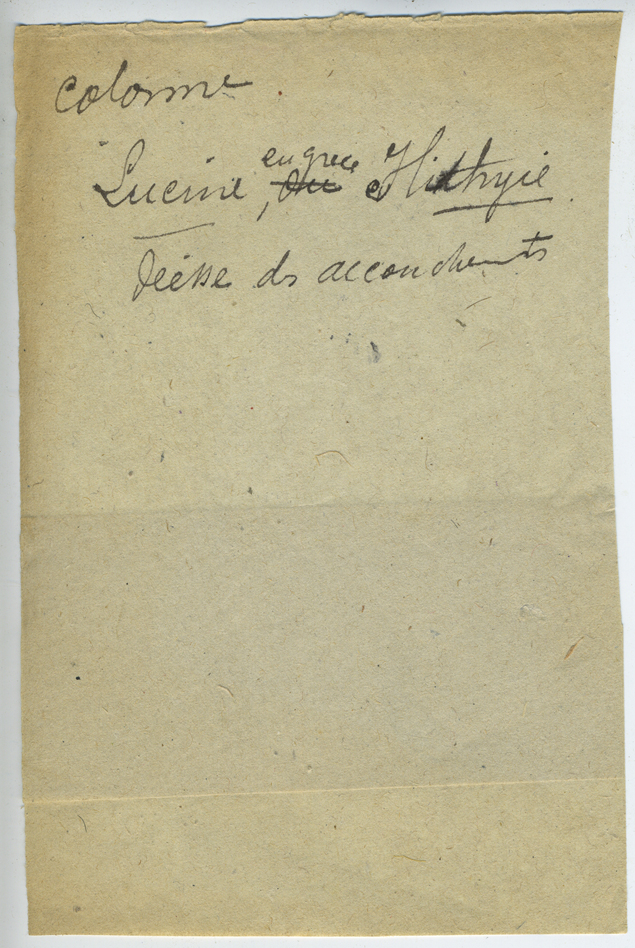 colonne
en grec
Lucine, ou Ilithyie
déesse des accouchements